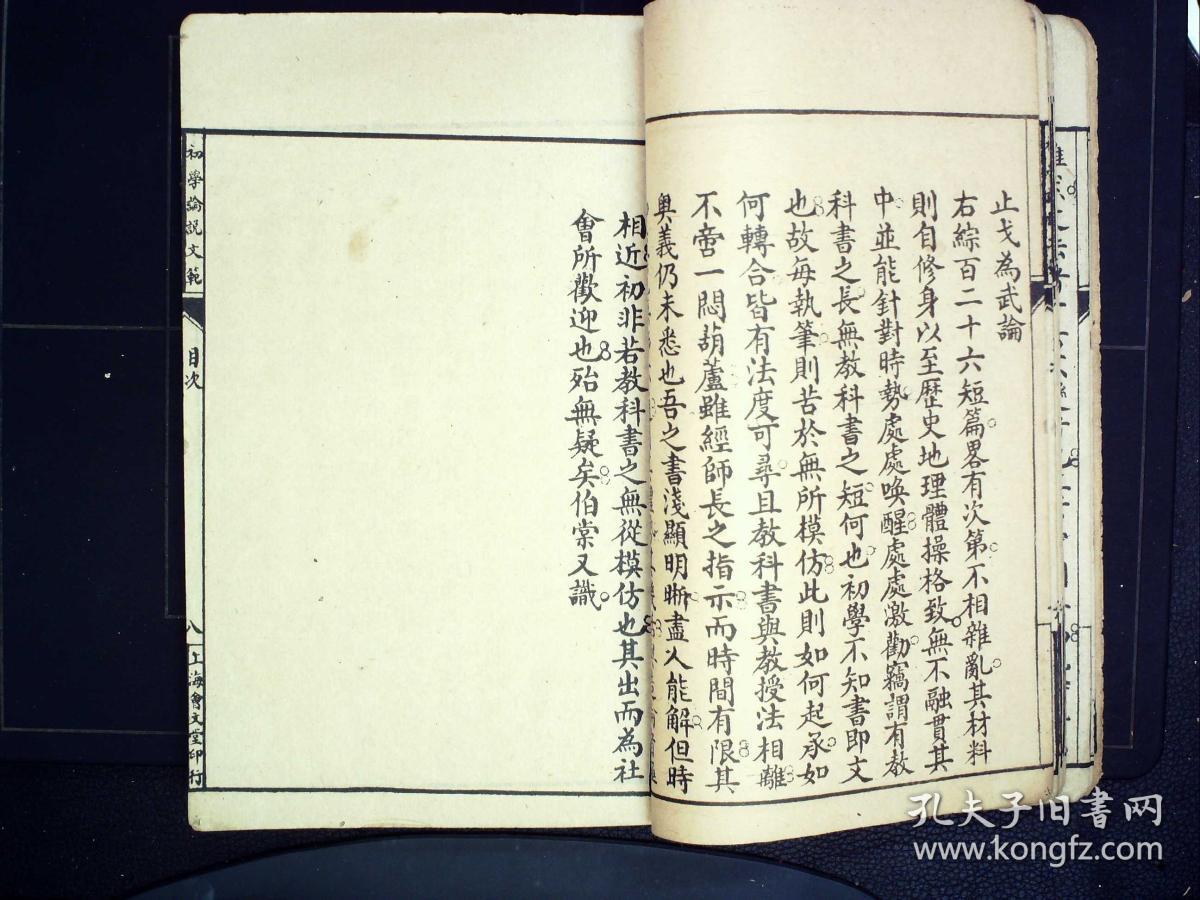 止戈為武論
右綜百二十六短篇畧有次第不相雜亂其材料
則自修身以至歷史地理體操格致無不融貫其
中並能針對時勢處處喚醒處處激勸竊謂有教
科書之長無教科書之短何也初學不知書即文
也故每執筆則苦於無所模仿此則如何起承如
何轉合皆有法度可尋且教科書與教授法相離
不啻一悶葫蘆雖經師長之指示而時間有限其
奧義仍未悉也吾之書淺顯明晰盡人能解但時
相近初非若教科書之無從模仿也其出而為社
會所歡迎也殆無疑矣伯棠又識
初學論說文範
目次
八
上海會文堂印行
孔夫子旧书网
www.kongfz.com